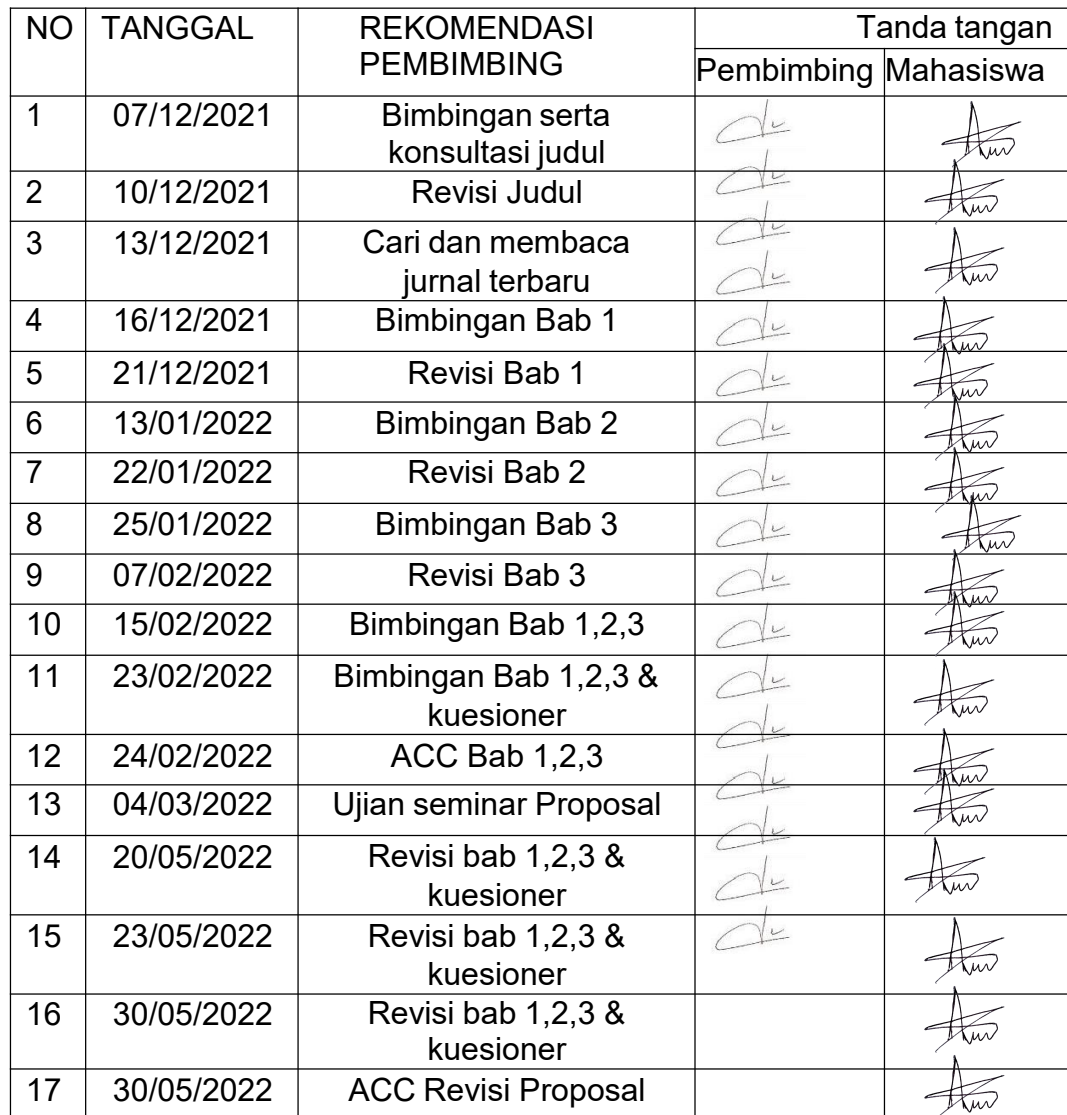 NO TANGGAL REKOMENDASI PEMBIMBING Tanda tangan
Pembimbing Mahasiswa
1 07/12/2021 Bimbingan serta
konsultasi judul
2 10/12/2021 Revisi Judul
3 13/12/2021 Cari dan membaca
jurnal terbaru
4 16/12/2021 Bimbingan Bab 1
5 21/12/2021 Revisi Bab 1
6 13/01/2022 Bimbingan Bab 2
7 22/01/2022 Revisi Bab 2
8 25/01/2022 Bimbingan Bab 3
9 07/02/2022 Revisi Bab 3
10 15/02/2022 Bimbingan Bab 1,2,3
11 23/02/2022 Bimbingan Bab 1,2,3 &
kuesioner
12 24/02/2022 ACC Bab 1,2,3
13 04/03/2022 Ujian seminar Proposal
14 20/05/2022 Revisi bab 1,2,3 &
kuesioner
15 23/05/2022 Revisi bab 1,2,3 &
kuesioner
16 30/05/2022 Revisi bab 1,2,3 &
kuesioner
17 30/05/2022 ACC Revisi Proposal